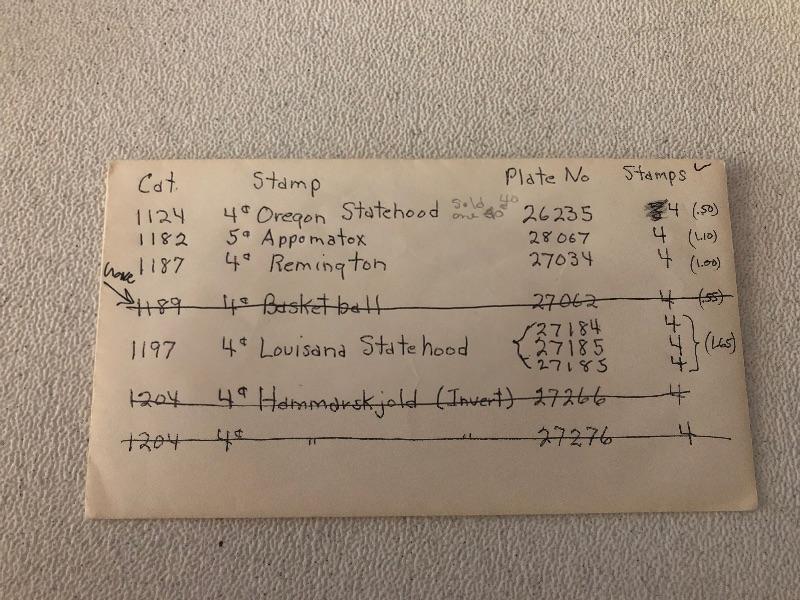 Cat. Stamp Plate No Stamps ✓
1124 4¢ Oregon Statehood sold one 40 26235 4 (.50)
1182 5¢ Appomatox 28067 4 (1.10)
1187 4¢ Remington 27034 4 (1.00)
have
1189 4¢ Basketball 27062 4 (.55)
27184 4
1197 4¢ Louisana Statehood 27185 4 (1.65)
27185 4
1204 4¢ Hammarskjold (Invert) 27266 4
1204 4¢ " " 27276 4